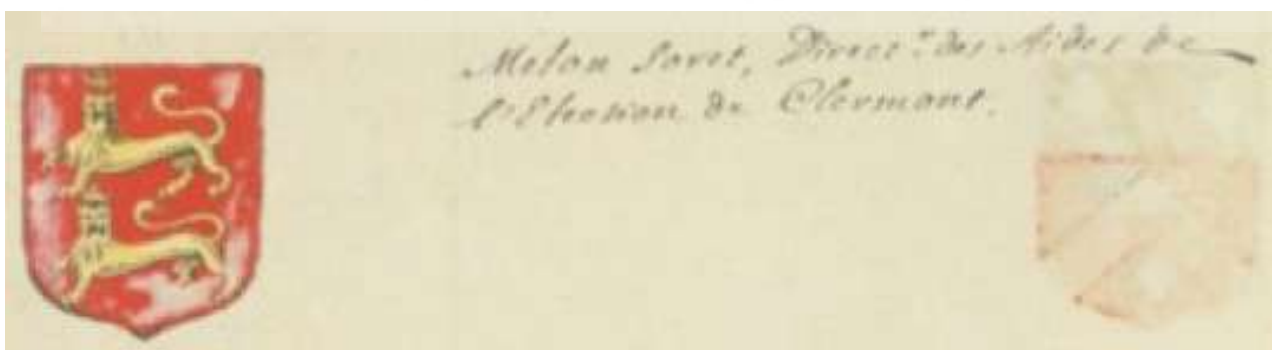 Melon Soret, Direcr. des Aides de
l'Election de Clermont.